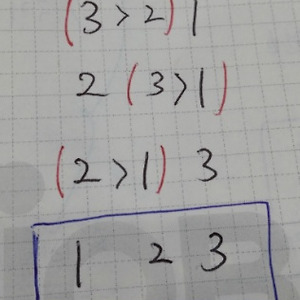 (3 > 2) 1
2 (3 > 1)
(2 > 1) 3
1 2 3